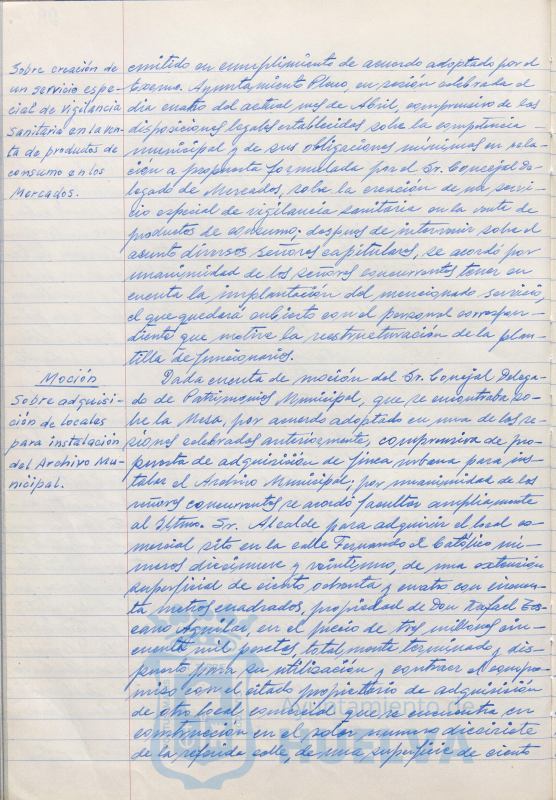 Sobre creación de
un servicio espe-
cial de Vigilancia
Sanitaria en la ven-
ta de productos de
consumo en los
Mercados.
emitido en cumplimiento de acuerdo adoptado por el
Excmo. Ayuntamiento Pleno, en sesión celebrada el
día cuatro del actual mes de Abril, comprensivo de las
disposiciones legales establecidas sobre la competencia
municipal y de sus obligaciones mínimas en rela-
ción a propuesta formulada por el Sr. Concejal De-
legado de Mercados, sobre la creación de un servi-
cio especial de vigilancia sanitaria en la venta de
productos de consumo. despues de intervenir sobre el
asunto diversos señores capitulares, se acordó por
unanimidad de los señores concurrentes tener en
cuenta la implantación del mencionado servicio,
el que quedará cubierto con el personal correspon-
diente que motive la reestructuración de la plan-
tilla de funcionarios.
Moción
Sobre adquisi-
ción de locales
para instalación
del Archivo Mu-
nicipal.
Dada cuenta de moción del Sr. Concejal Delega-
do de Patrimonio Municipal, que se encontraba so-
bre la Mesa, por acuerdo adoptado en una de las se-
siones celebradas anteriormente, comprensiva de pro-
puesta de adquisición de finca urbana para ins-
talar el Archivo Municipal, por unanimidad de los
señores concurrentes se acordó facultar ampliamente
al Iltmo. Sr. Alcalde para adquirir el local co-
mercial sito en la calle Fernando el Católico nú-
meros diecinueve y veintiuno, de una extensión
superficial de ciento ochenta y cuatro con cincuen-
ta metros cuadrados, propiedad de Don Rafael Tos-
cano Aguilar, en el precio de tres millones cin-
cuenta mil pesetas, totalmente terminado y dis-
puesto para su utilización y contraer el compro-
miso con el citado propietario de adquisición
de otro local comercial que se encuentra en
construcción en el solar numero diecisiete
de la referida calle, de una superficie de ciento
Ayuntamiento de
HUELVA